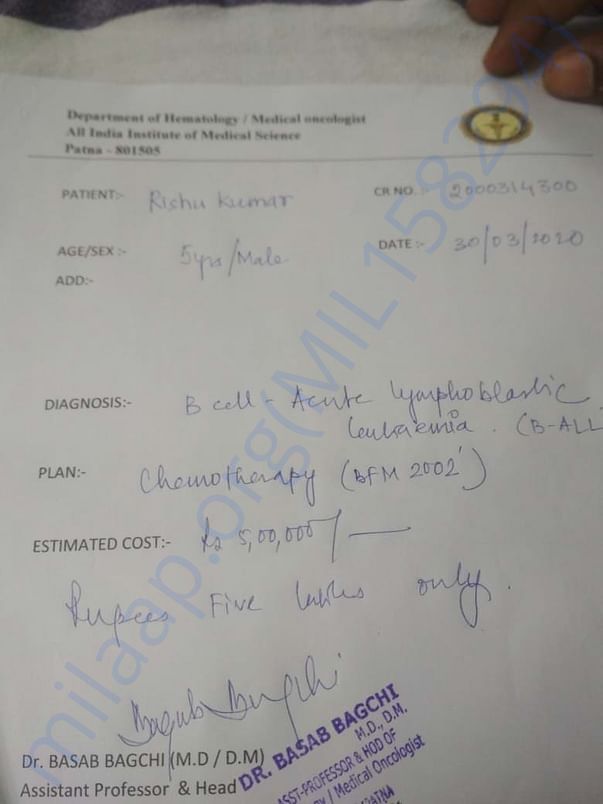 Department of Hematology / Medical oncologist
All India Institute of Medical Science
Patna - 801505
PATIENT:- Rishu Kumar
CR NO. :- 2000314300
AGE/SEX :- 5yrs/Male
DATE :- 30/03/2020
ADD:-
DIAGNOSIS:- B cell - Acute lymphoblastic
leukaemia. (B-ALL
PLAN:- Chemotherapy (BFM 2002)
ESTIMATED COST:- Rs 5,00,000/-
Rupees Five lakhs only.
Basab Bagchi
Dr. BASAB BAGCHI (M.D / D.M)
Assistant Professor & Head
DR. BASAB BAGCHI
M.D., D.M.
ASST-PROFESSOR & HOD OF
/ Medical Oncologist
PATNA
milaap.org(MIL158294)